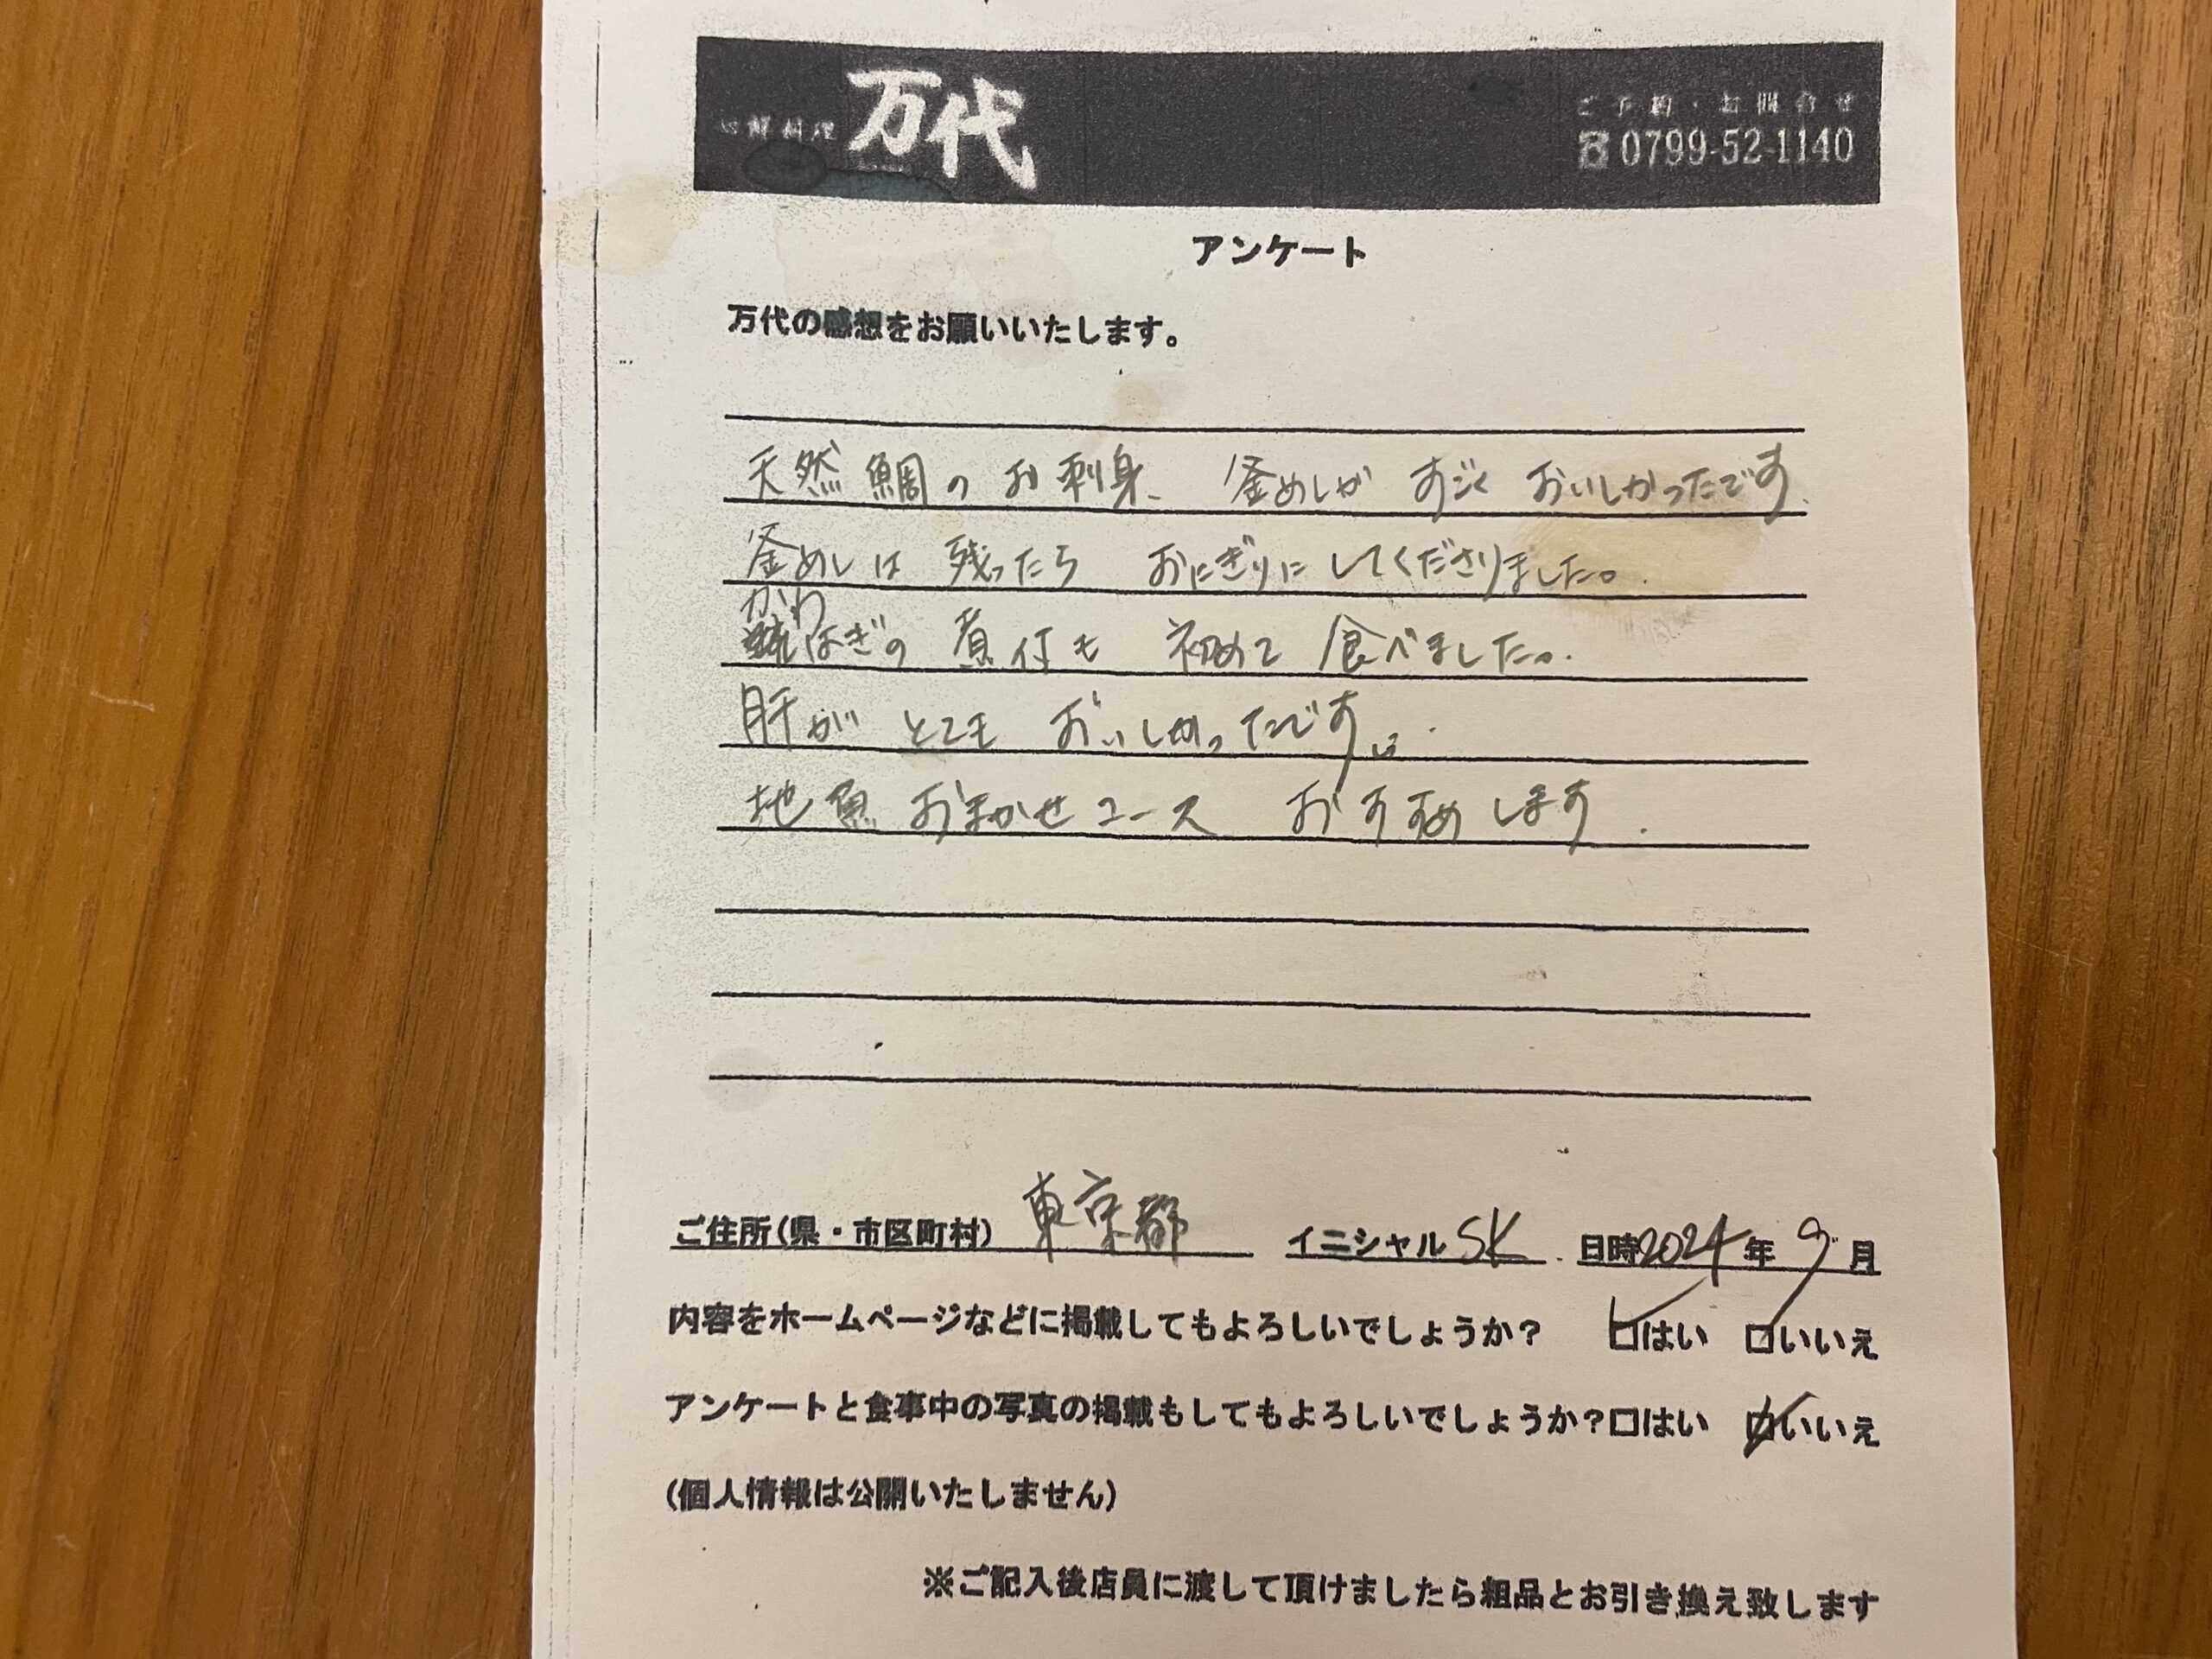 万代
ご予約・お問合せ
☎0799-52-1140
アンケート
万代の感想をお願いいたします。
天然鯛のお刺身、釜めしが すごく おいしかったです。
釜めしは 残ったら おにぎりにしてくださりました。
かわはぎの 煮付も 初めて 食べました。
肝が とても おいしかったです。
地魚 おまかせコース おすすめします.
ご住所(県・市区町村) 東京都 イニシャル SK 日時2024年9月
内容をホームページなどに掲載してもよろしいでしょうか? □はい □いいえ
アンケートと食事中の写真の掲載もしてもよろしいでしょうか?□はい □いいえ
(個人情報は公開いたしません)
※ご記入後店員に渡して頂けましたら粗品とお引き換え致します